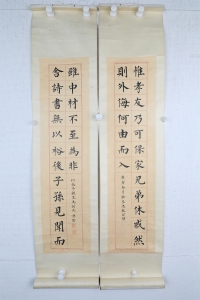 惟孝友乃可保家兄弟休戚然
則外侮何由而入
舍詩書無以裕後子孫見聞而
雖中材不至為非